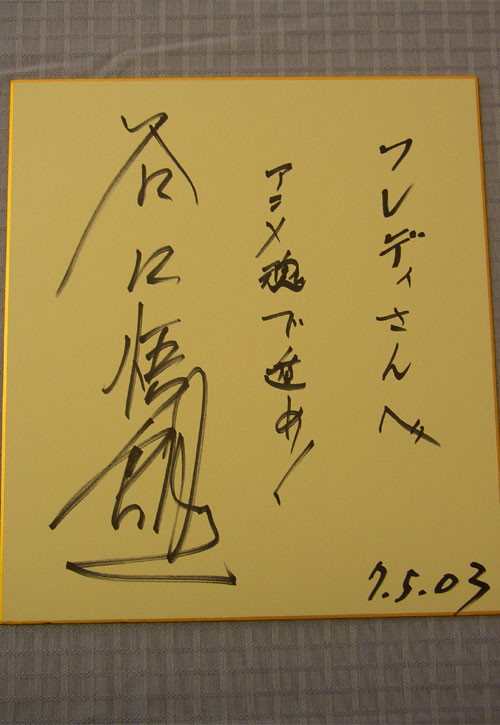 フレディさんへ
アニメ魂で進め!
谷口悟朗
7.5.03